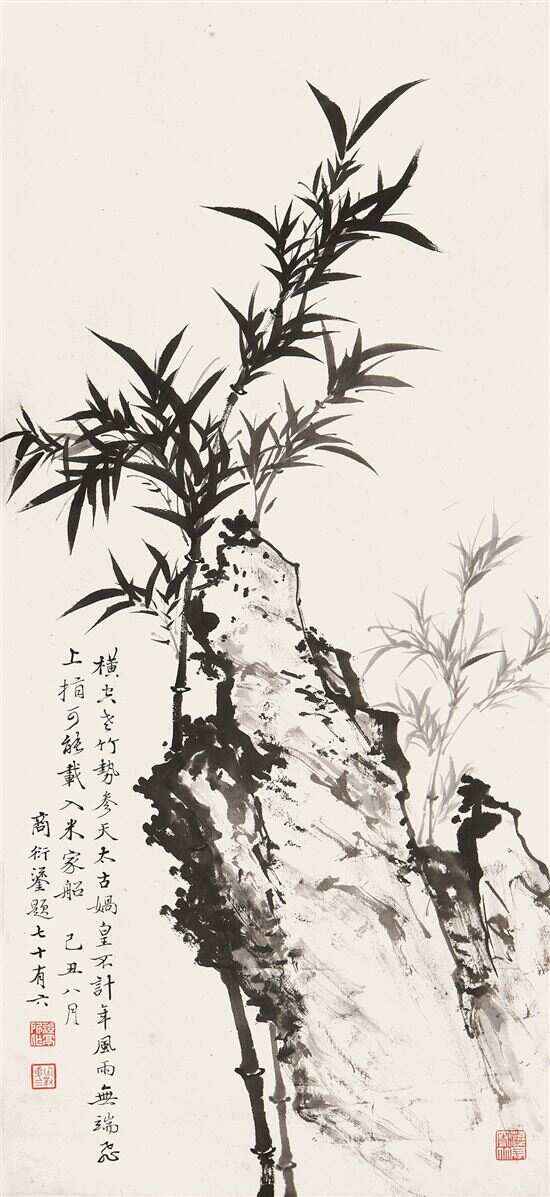 橫空老竹勢參天太古媧皇不計年風雨無端飛
上可能載入米家船 己丑八月
商衍鎏題七十有六